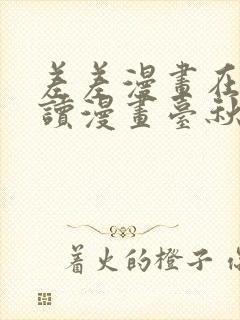 差差漫畫在
讀漫畫臺秋
著火的橙子